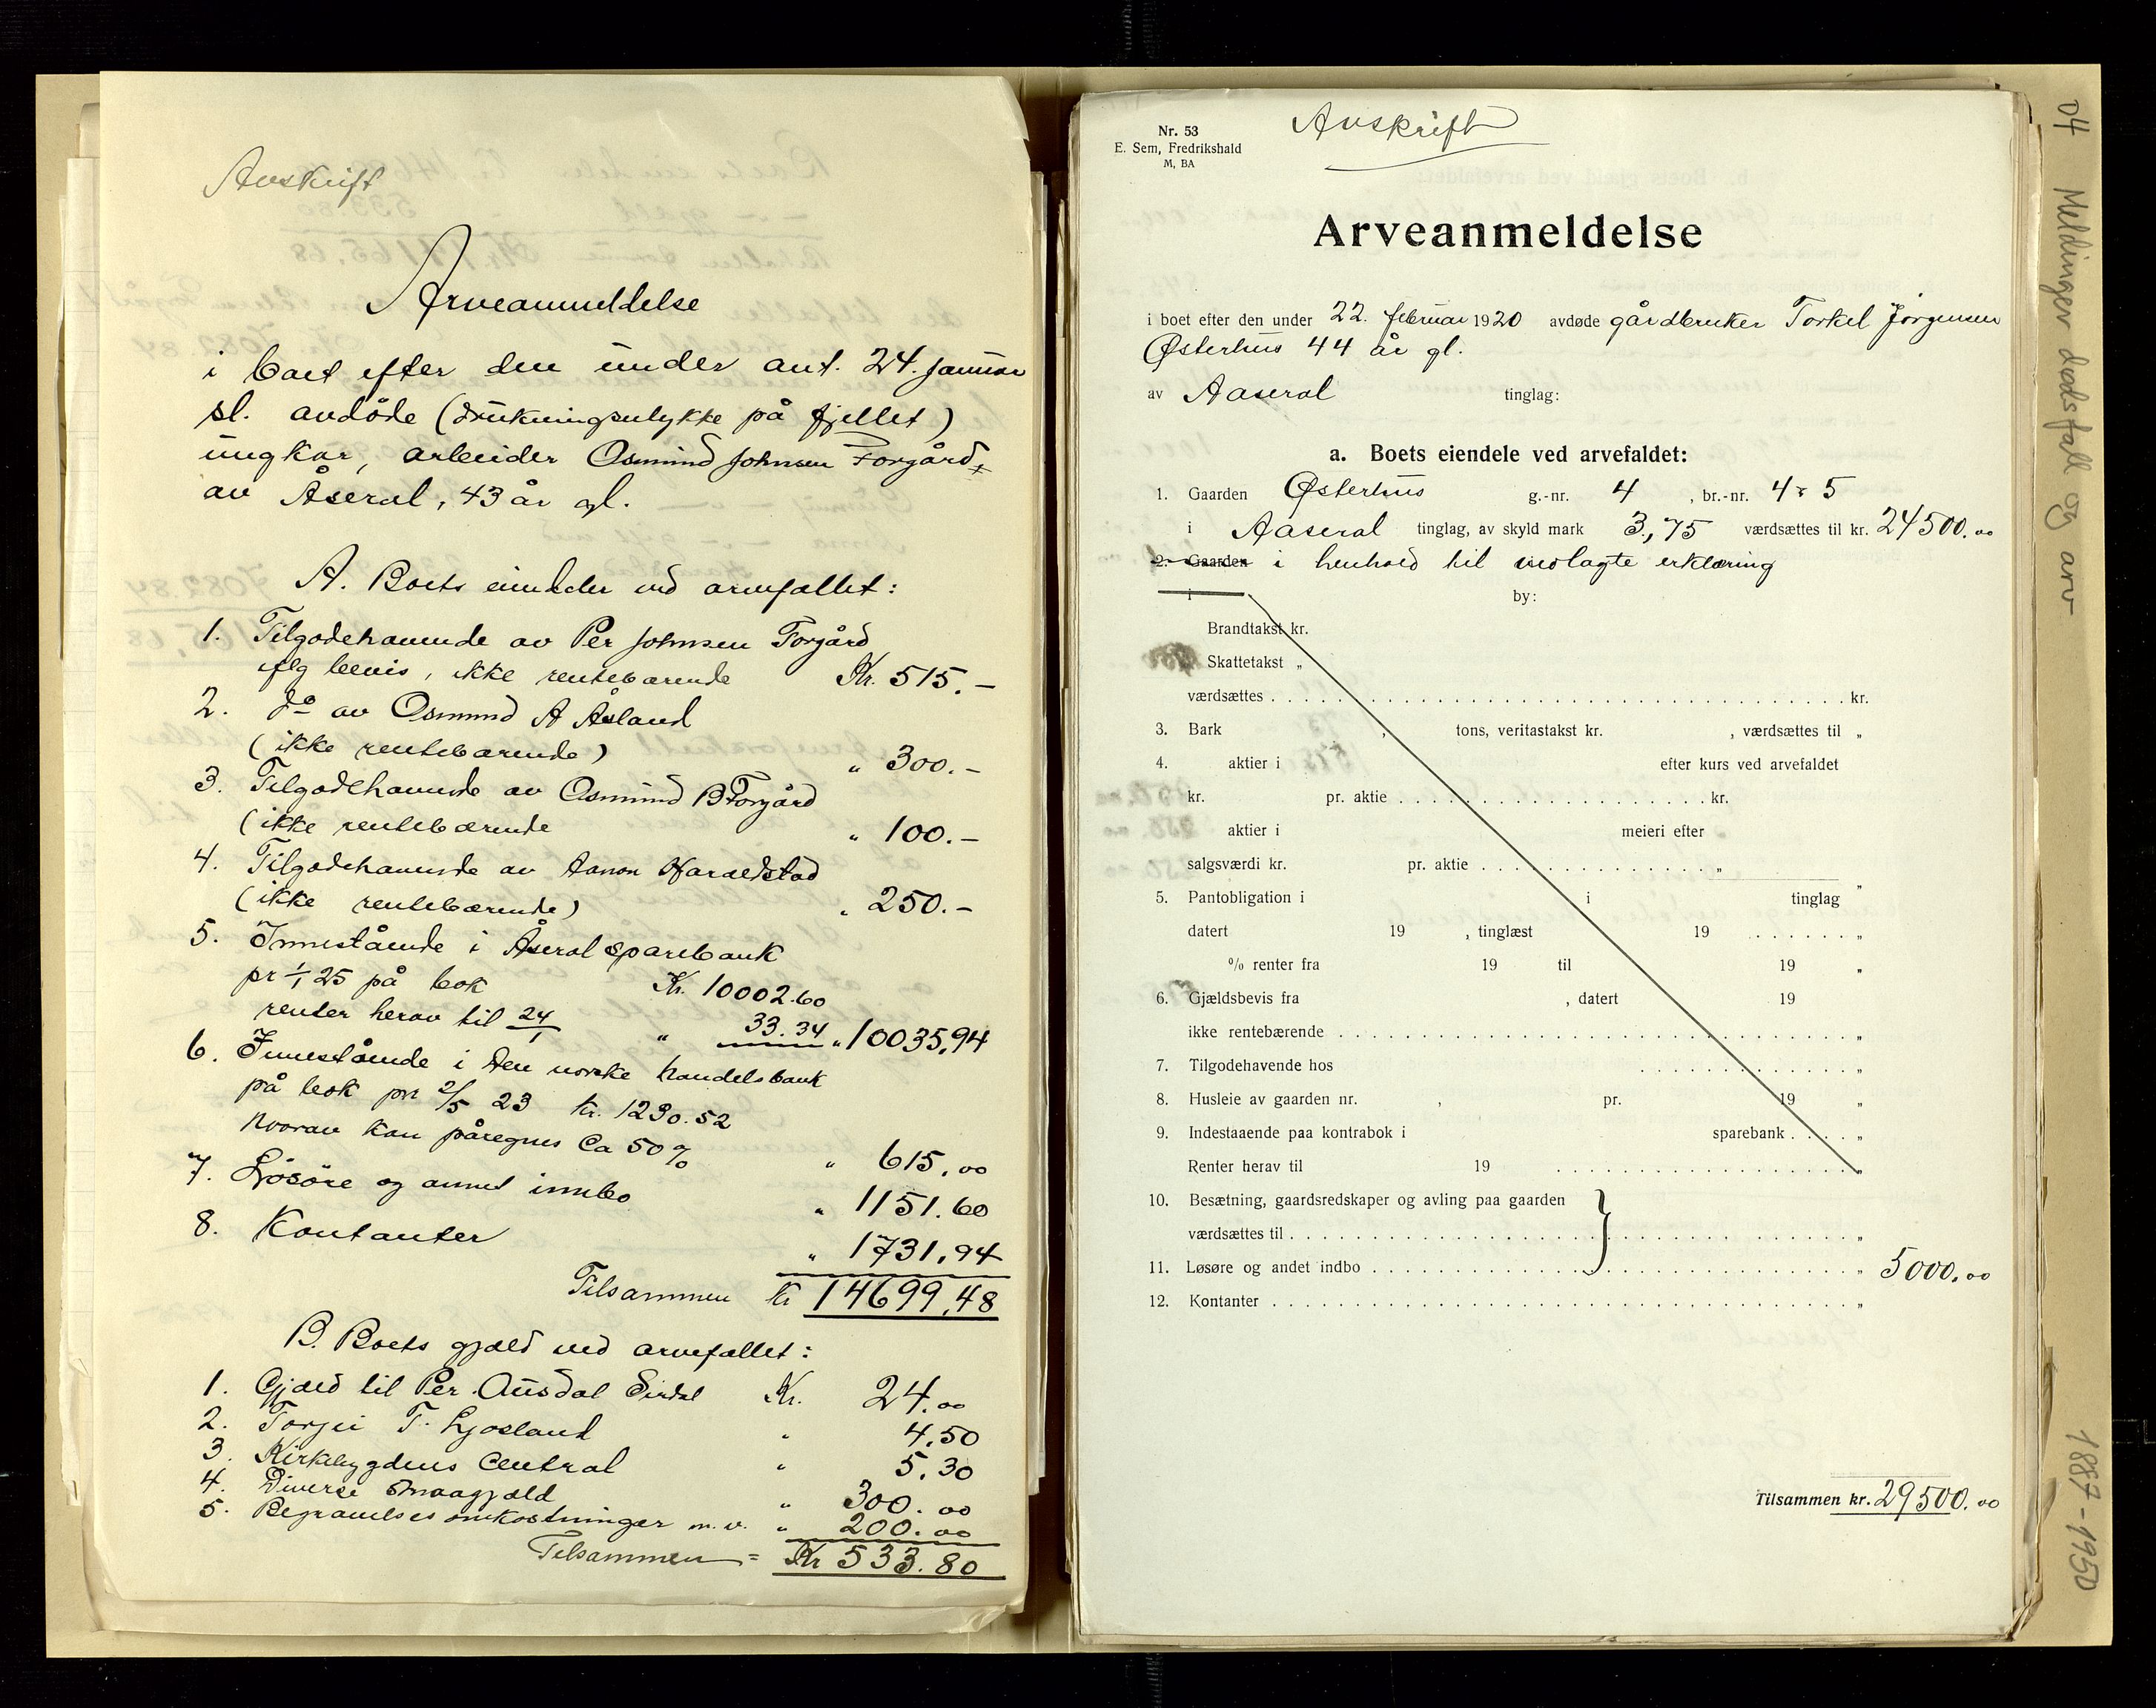 Avskrift
Arveanmeldelse
i boet efter den under ant. 24. januar
sl. avdöde (drukningsulykke på fjellet)
ungkar, arbeider Osmund Johnsen Forgård
av Åseral, 43 år gl.
A. Boets eiendeler ved arvefallet:
1. Tilgodehavende av Per Johnsen Forgård
flg bevis, ikke rentebærende Kr. 515.-
2. do av Osmund A Åsland
(ikke rentebærende) " 300.-
3. Tilgodehavende av Osmund B Forgård
(ikke rentebærende " 100.-
4. Tilgodehavende av Aanon Haraldstad
(ikke rentebærende) " 250.-
5. Innestående i Åseral sparebank
pr 1/1 25 på bok Kr. 10002.60
renter herav til 24/1 " 33.34 " 10035,94
6. Innestående i Den norske handelsbank
på bok pr 2/5 23 kr. 1230.52
hvorav kan påregnes Ca 50% " 615,00
7. Lösöre og annet innbo " 1151.60
8. Kontanter " 1731,94
Tilsammen Kr 14699,48
B. Boets gjæld ved arvefallet:
1. Gjæld til Per Ausdal Sirdal Kr. 24.00
2. Torjei T. Ljosland " 4,50
3. Kirkebygdens Central " 5.30
4. Diverse smaagjæld " 300.00
5. Begravelsesomkostninger m.v. " 200.00
Tilsammen = Kr 533.80
Nr. 53
E. Sem, Fredrikshald
M, BA
Avskrift
Arveanmeldelse
i boet efter den under 22. februar 1920 avdøde gårdbruker Torkel Jörgensen
Østerhus 44 år gl.
av Aaseral tinglag:
a. Boets eiendele ved arvefaldet:
1. Gaarden Østerhus g.-nr. 4 , br.-nr. 4 & 5
i Aaseral tinglag, av skyld mark 3,75 værdsættes til kr. 24500.00
2. Gaarden i henhold til vedlagte erklæring
i by:
Brandtakst kr.
Skattetakst „
værdsættes . . . . . kr.
3. Bark , tons, veritastakst kr. , værdsættes til „
4. aktier i efter kurs ved arvefaldet
kr. pr. aktie . . . . . kr.
aktier i meieri efter
salgsværdi kr. pr. aktie . . . . . „
5. Pantobligation i i tinglag „
datert 19 , tinglæst 19 . . . . . „
% renter fra 19 til 19 „
6. Gjældsbevis fra , datert 19
ikke rentebærende . . . . . „
7. Tilgodehavende hos . . . . . „
8. Husleie av gaarden nr. , pr. 19 „
9. Indestaaende paa kontrabok i sparebank . . . . „
Renter herav til 19 . . . . . „
10. Besætning, gaardsredskaper og avling paa gaarden
værdsættes til . . . . . „
11. Løsøre og andet indbo . . . . . „ 5000.00
12. Kontanter . . . . . „
Tilsammen kr. 29500.00
04 Meldinger dødsfall og arv 1887-1950